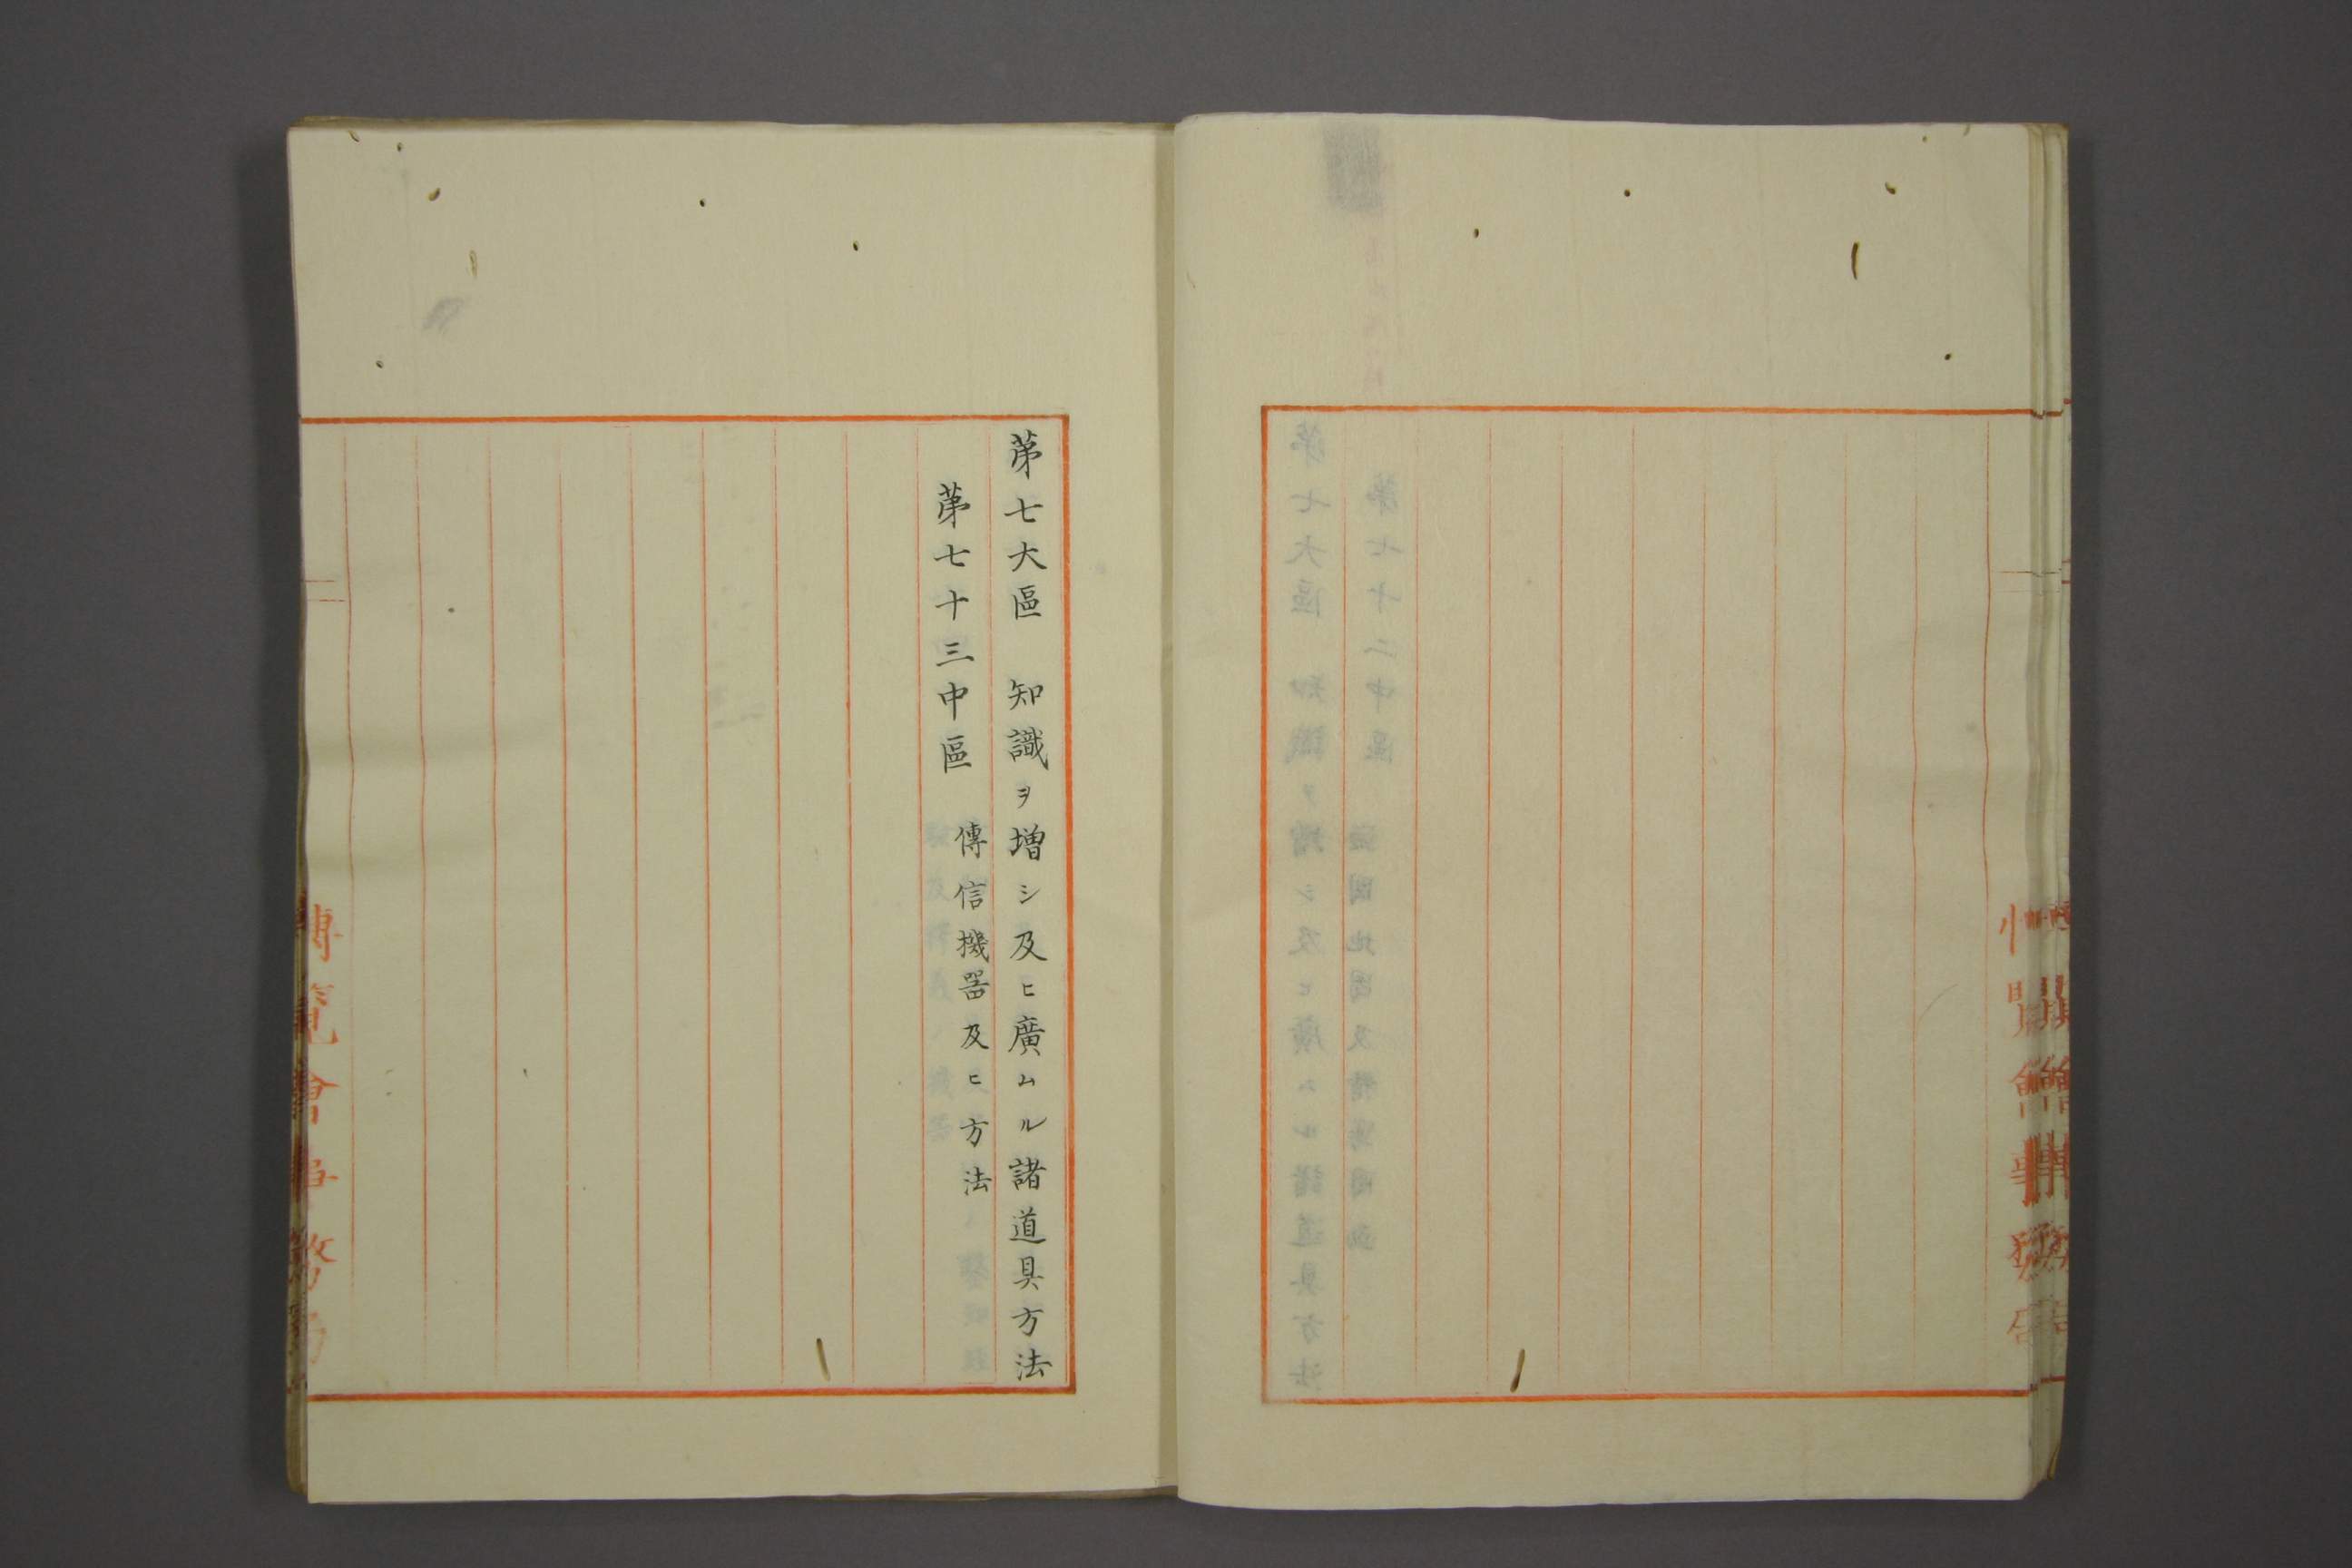 第七大區　知識ヲ増シ及ヒ廣ムル諸道具方法
第七十三中區　傳信機器及ヒ方法